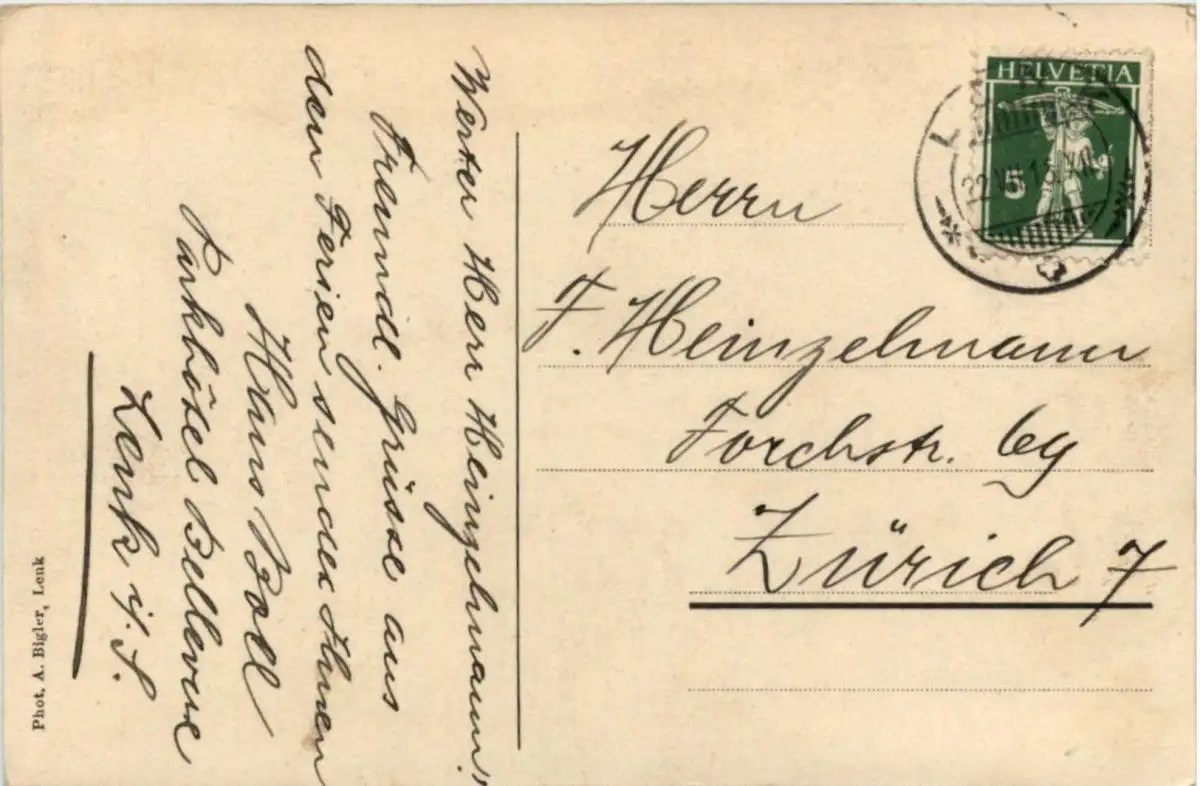 Werter Herr Heinzelmann!
Freundl. Grüsse aus
den Ferien sendet Ihnen
Hans Boll
Parkhôtel Bellevue
Lenk i/S.
Phot. A. Bigler, Lenk
HELVETIA
5
Herrn
F. Heinzelmann
Forchstr. 69
Zürich 7